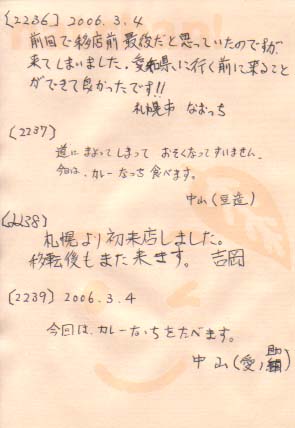 〔2236〕 2006.3.4
前回で移店前最後だと思っていたのですが
来てしまいました。愛知県、に行く前に来ること
ができて良かったです!!
札幌市 なおっち
〔2237〕
道にまよってしまって おそくなってすいません。
今日は、カレーなっち食べます。
中山(豆造)
〔2238〕
札幌より初来店しました。
移転後もまた来きす。 吉岡
〔2239〕 2006.3.4
今回は、カレーなっちをたべます。
中山(愛ノ助)